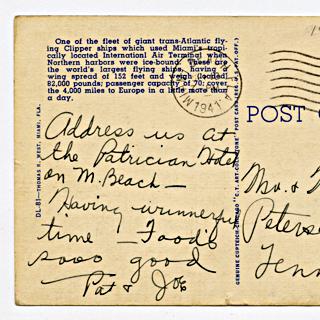 One of the fleet of giant trans-Atlantic fly-
ing Clipper ships which used Miami's tropi-
cally located International Air Terminal when
Northern harbors were ice-bound. These are
the world's largest flying ships, having a
wing spread of 152 feet and weigh (loaded)
82,000 pounds; passenger capacity of 70; cover
the 4,000 miles to Europe in a little more than
a day.
DL-81—THOMAS R. WEST, MIAMI, FLA.
Address us at
the Patrician Hotel
on M. Beach —
Having wunnerful
time — Food's
sooo good
Pat & Joe
GENUINE CURTEICH-CHICAGO "C.T. ART-COLORTONE" POST CARD (REG. U.S. PAT. OFF.)
1941
POST C
Mr. &
Peters
Tenn